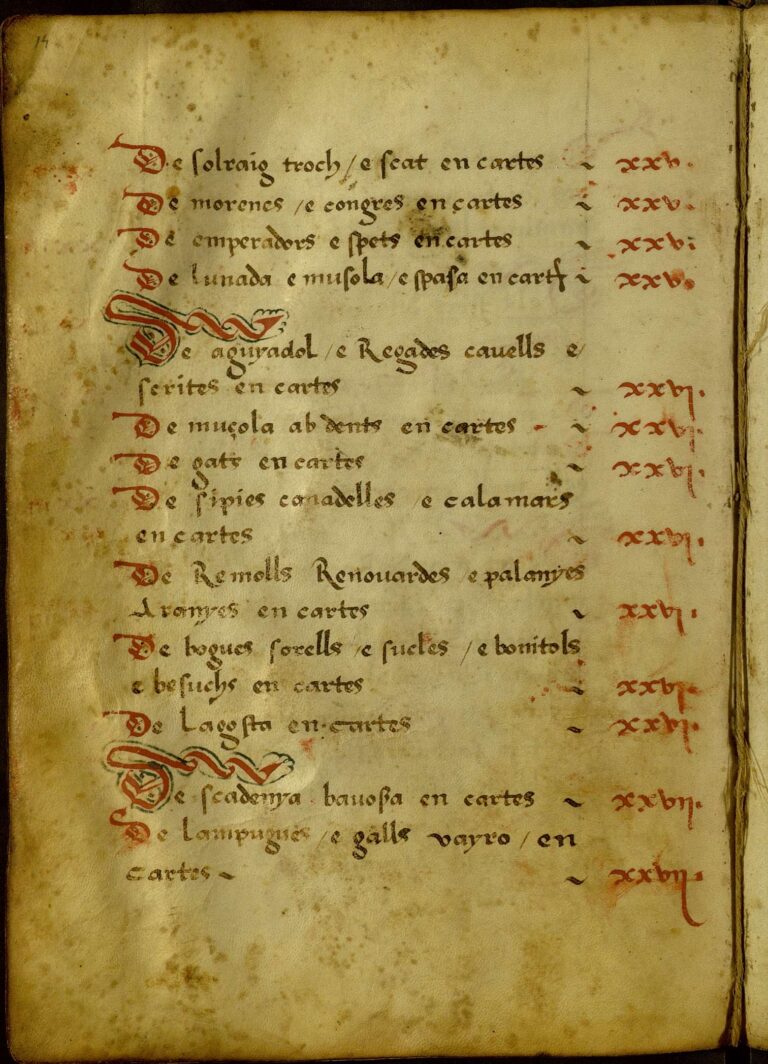 14
De solraig troch / e scat en cartes ~ xxv.
De morenes / e congres en cartes ~ xxv.
De emperadors e spets en cartes ~ xxv.
De lunada e musola / e spasa en cart ~ xxv.
De aguyadol / e Regades cavells e /
serites en cartes ~ xxvj.
De muçola ab dents en cartes - ~ xxvj.
De gats en cartes ~ xxvj.
De sipies canadelles / e calamars
en cartes ~ xxvj.
De Remolls Renouardes e palanyes
Aranyes en cartes ~ xxvj.
De bogues sorells / e sucles / e bonitols
e besuchs en cartes ~ xxvj.
De lagosta en cartes ~ xxvj.
De scadenya bauosa en cartes ~ xxvij.
De lampugues / e galls vayro / en
cartes ~ ~ xxvij.